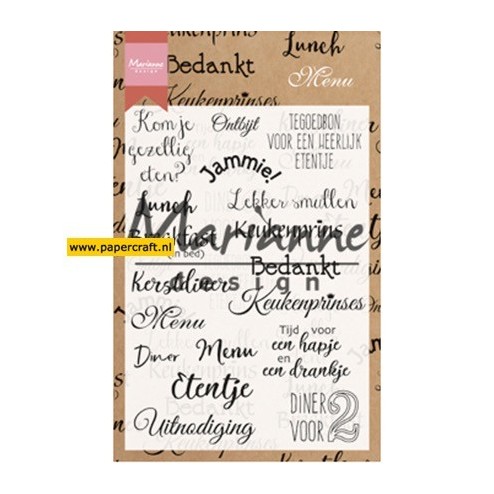 Marianne
design
Lunch
Bedankt
Menu
Keukenprinses
Kom je
gezellig
eten?
Ontbijt
TEGOEDBON
VOOR EEN HEERLIJK
ETENTJE
Jammie!
Lunch
Lekker smullen
Keukenprins
Breakfast
(in bed)
Marianne
design
www.papercraft.nl
Bedankt
Kerstdiner
Keukenprinses
Menu
Tijd voor
een hapje
en
een drankje
Diner
Menu
Etentje
DINER
VOOR 2
Uitnodiging